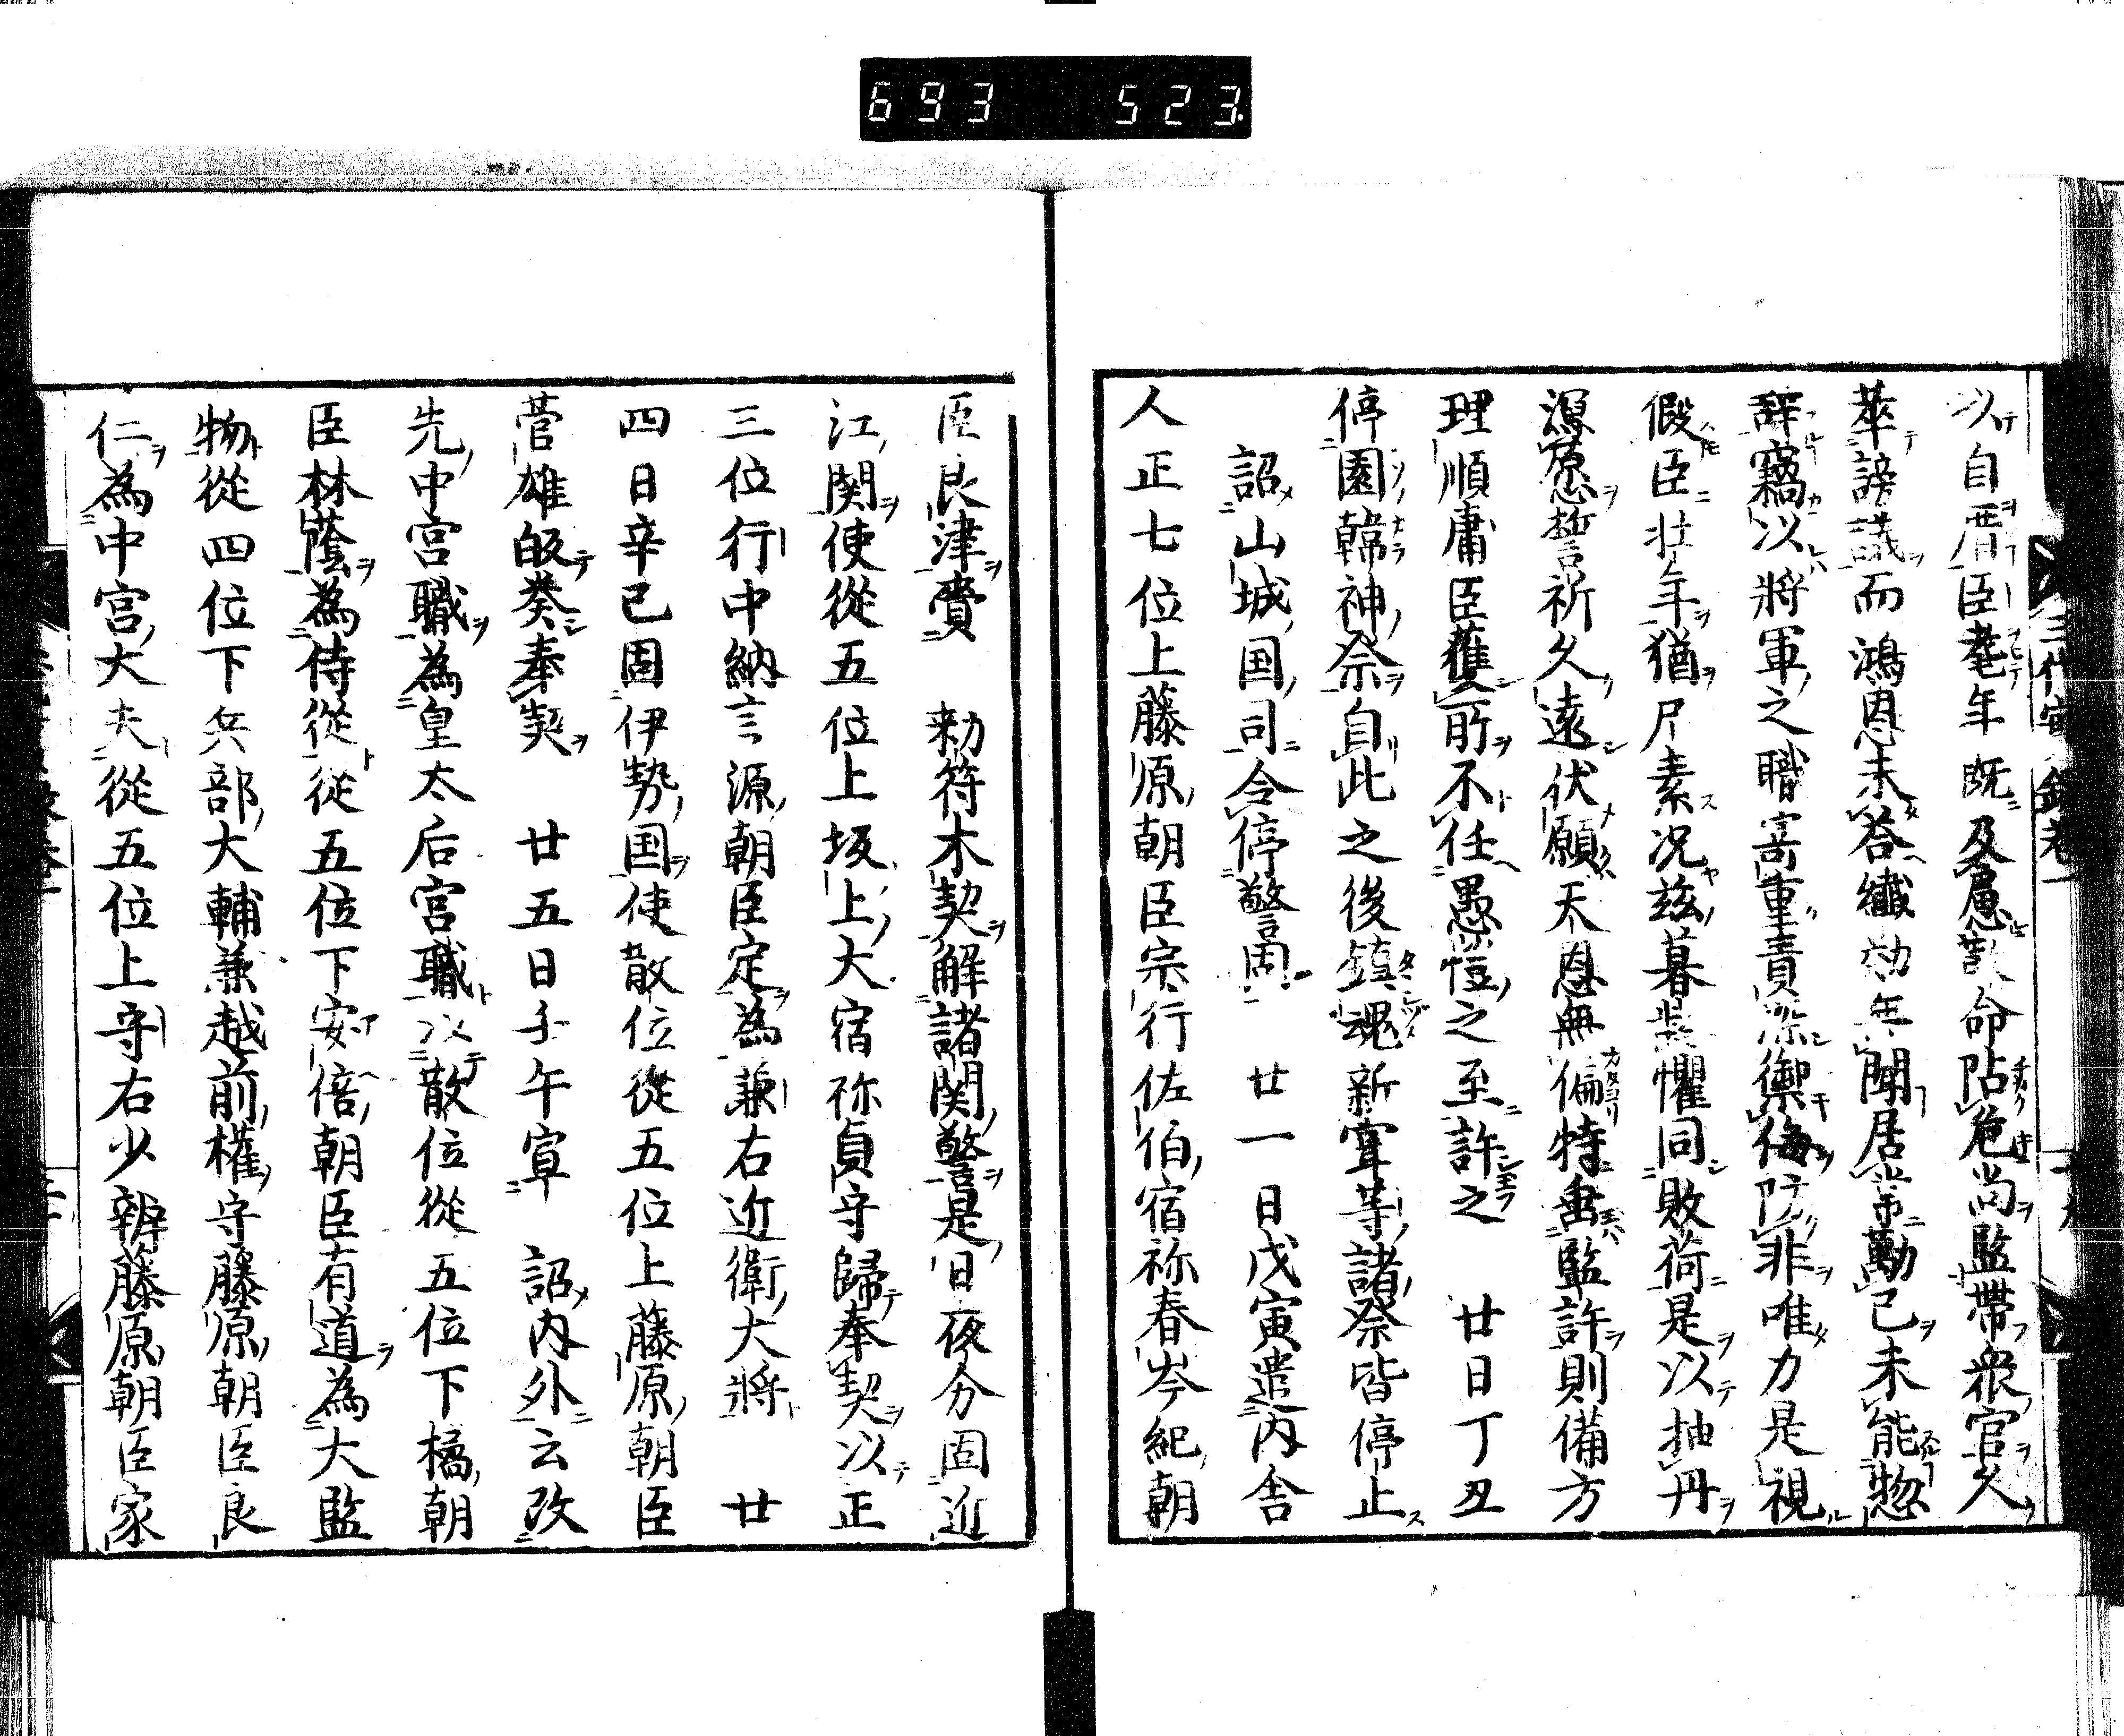 693 523
以自厝臣耄年既及屬歎命阽危尚監帶衆官久
萃謗議而鴻恩未答纎効無聞居常勤己未能惣
辭竊以將軍之職寄重責深禦侮防非唯力是視
假臣壮年猶尸素况玆暮齡懼同敗荷是以抽丹
愿誓祈久遠伏願天恩無偏特垂監許則備方
理順庸臣獲所不任愚悾之至許之 廿日丁丑
停園韓神祭自此之後鎮魂新甞等諸祭皆停止
詔山城国司令停警固 廿一日戊寅遣内舎
人正七位上藤原朝臣宗行佐伯宿祢春岑紀朝
臣良津賷 勑符木契解諸関警是日夜分固近
江関使從五位上坂上大宿祢貞守歸奉契以正
三位行中納言源朝臣定為兼右近衛大將 廿
四日辛巳固伊勢国使散位從五位上藤原朝臣
菅雄皈奉契 廿五日壬午 詔内外云改
先中宮職為皇太后宮職以散位從五位下橘朝
臣林蔭為侍從從五位下安倍朝臣有道為大監
物從四位下兵部大輔兼越前權守藤原朝臣良
仁為中宮大夫從五位上守右少辨藤原朝臣家